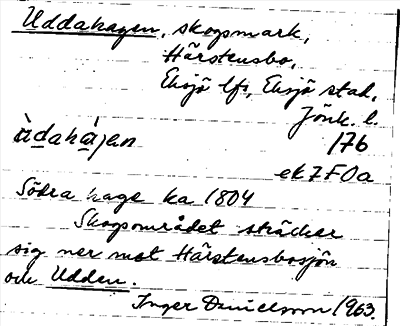 Uddahagen, skogsmark,
Härstensbo,
Eksjö lfs, Eksjö stad,
Jönk. l.
ùdahàjen 176
ek 7F0a
Södra hage ka 1804
Skogsområdet sträcker
sig ner mot Härstensbosjön
och Udden.
Inger Danielsson 1963.